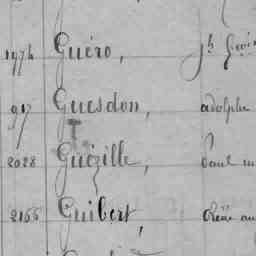 1974 Guéro, Jh
917 Guesdon, adolphe
2028 Guézille, Paul
2166 Guibert